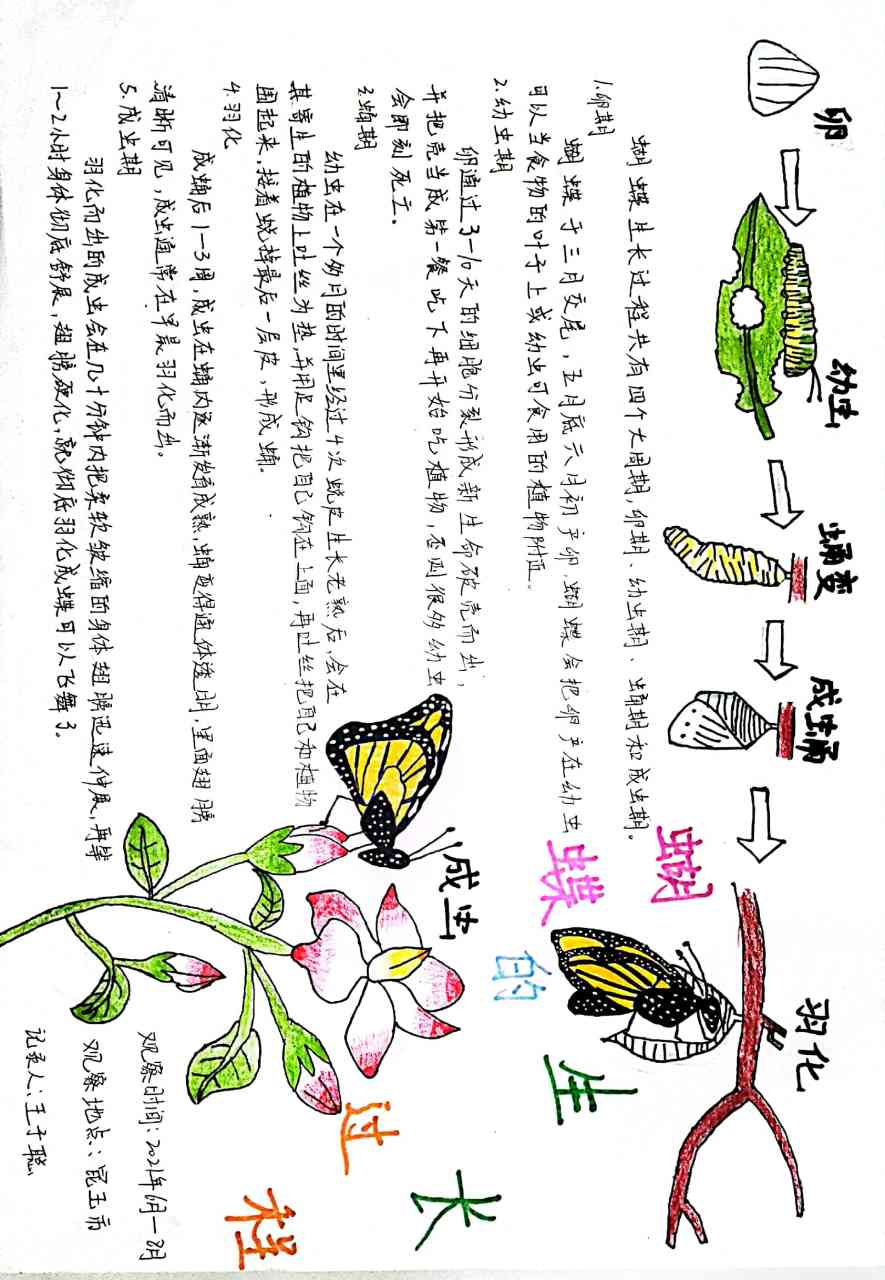 卵
幼虫
蛹变
成虫蛹
羽化
蝴蝶的生长过程
成虫
蝴蝶生长过程共有四个大周期,卵期、幼虫期、蛹期和成虫期。
1.卵期
蝴蝶于三月交尾,五月底六月初产卵.蝴蝶会把卵产在幼虫
可以当食物的叶子上或幼虫可食用的植物附近。
2.幼虫期
卵通过3-10天的细胞分裂形成新生命破壳而出,
并把壳当成第一餐吃下再开始吃植物,否则很多幼虫
会即刻死亡。
3.蛹期
幼虫在一个多月的时间里经过4次蜕皮生长老熟后,会在
其寄生的植物上吐丝为垫,并用足钩把自己钩在上面,再吐丝把自己和植物
围起来,接着蜕掉最后一层皮,形成蛹。
4.羽化
成蛹后1-3周,成虫在蛹内逐渐发育成熟.蛹变得通体透明.里面翅膀
清晰可见,成虫通常在早晨羽化而出。
5.成虫期
羽化而出的成虫会在几十分钟内把柔软皱缩的身体翅膀迅速伸展,再等
1~2小时身体彻底舒展,翅膀硬化,就彻底羽化成蝶可以飞舞了。
观察时间:2021年6月-8月
观察地点:昆玉市
记录人:王子聪